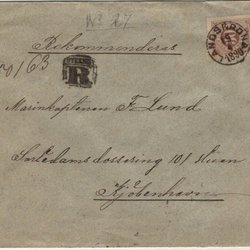 No 27
Rekommanderes
R
LANDSKRONA
Marinkaptenen F. Lund
Sortedams dossering 101 Stuen
Kjöbenhavn